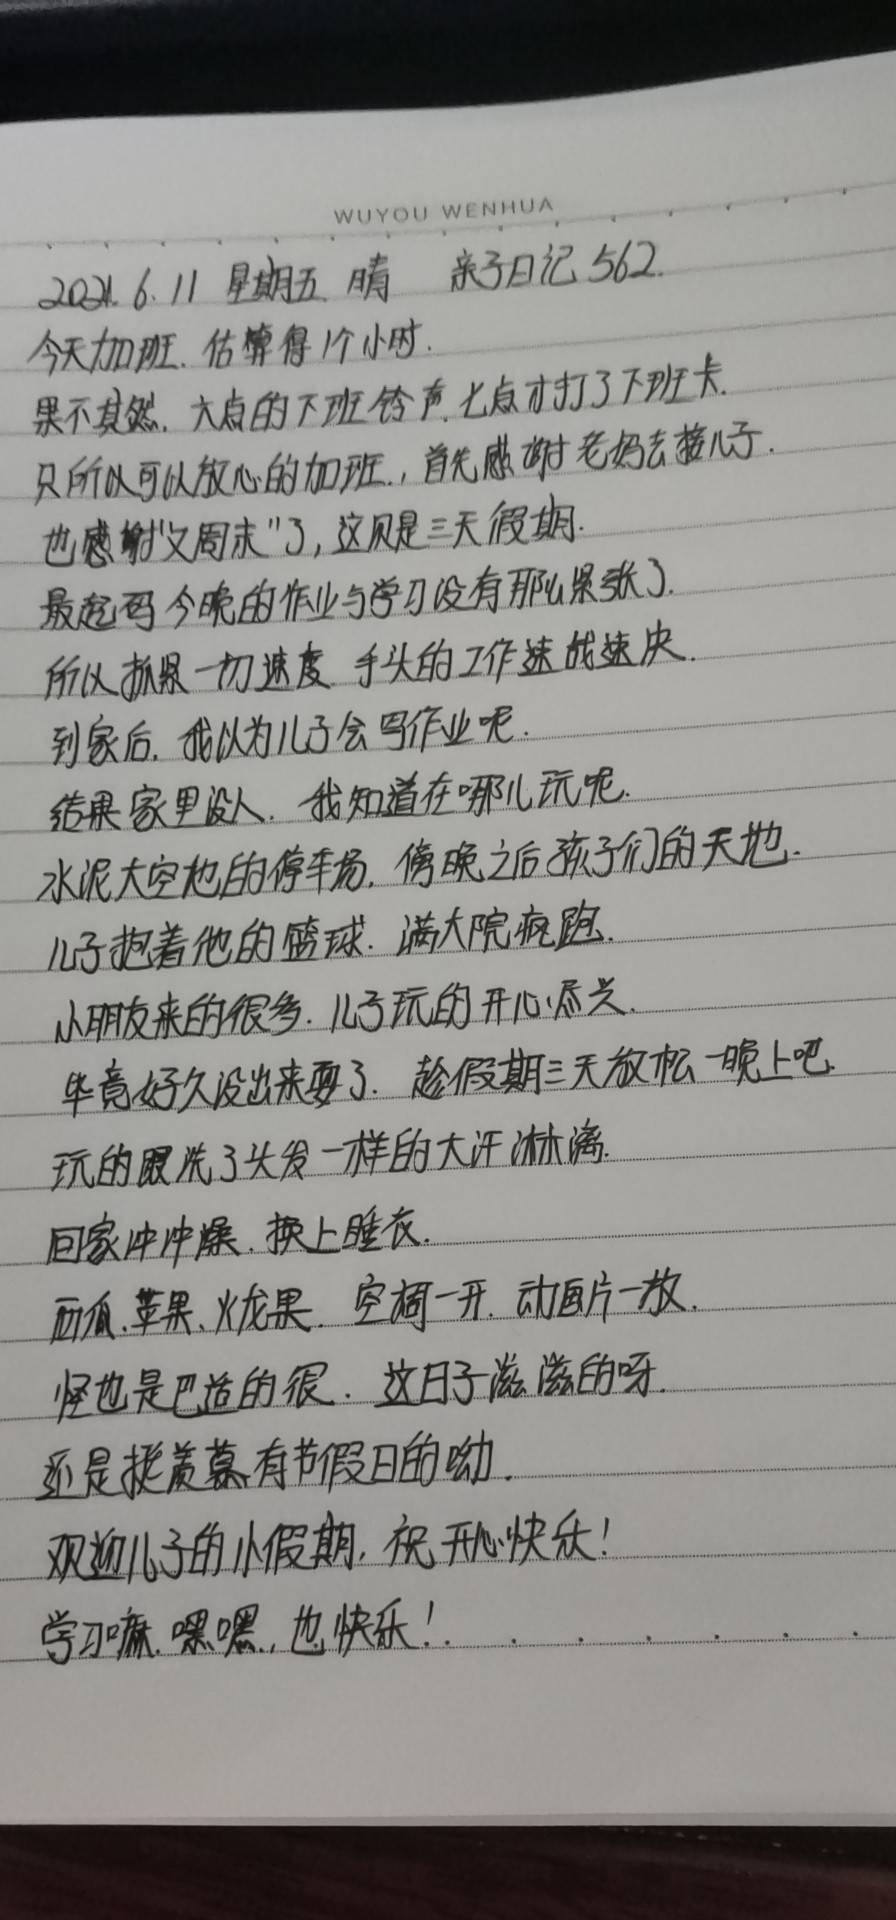 WUYOU WENHUA
2021.6.11 星期五 晴 亲子日记 562.
今天加班. 估算得1个小时.
果不其然. 六点的下班铃声. 七点才打了下班卡.
只所以可以放心的加班., 首先感谢老妈去接儿子.
也感谢"又周末"了, 这次是三天假期.
最起码今晚的作业与学习没有那么紧张了.
所以抓紧一切速度 手头的工作速战速决.
到家后. 我以为儿子会写作业呢.
结果家里没人. 我知道在哪儿玩呢.
水泥大空地的停车场. 傍晚之后孩子们的天地.
儿子抱着他的篮球. 满大院疯跑.
小朋友来的很多. 儿子玩的开心尽兴.
毕竟好久没出来耍了. 趁假期三天放松一晚上吧.
玩的跟洗了头发一样的大汗淋漓.
回家冲冲澡. 换上睡衣.
西瓜、苹果、火龙果. 空调一开. 动画片一放.
怪也是巴适的很. 这日子滋滋的呀.
还是挺羡慕有节假日的呦.
欢迎儿子的小假期. 祝开心快乐!
学习嘛. 嘿嘿., 也快乐!